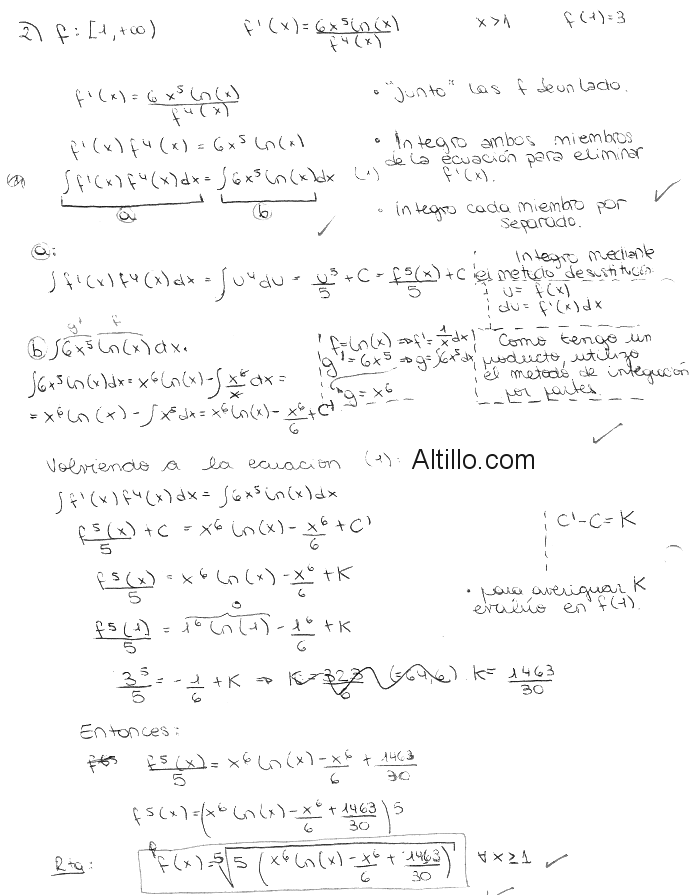 2) f: [1, +∞)   f'(x) = 6x⁵ ln(x) / f⁴(x)   x>1   f(1)=3
f'(x) = 6x⁵ ln(x) / f⁴(x)   • "Junto" las f de un lado.
f'(x) f⁴(x) = 6x⁵ ln(x)   • Integro ambos miembros
de la ecuación para eliminar
∫f'(x) f⁴(x) dx = ∫6x⁵ ln(x) dx   (1)   f'(x).
ⓐ   ⓑ   • integro cada miembro por
separado.
ⓐ:
∫f'(x) f⁴(x) dx = ∫u⁴ du = u⁵/5 + C = f⁵(x)/5 + C   Integro mediante
el metodo de sustitución
u = f(x)
du = f'(x) dx
g'   f
ⓑ ∫6x⁵ ln(x) dx.   f = ln(x) ⇒ f' = 1/x dx)   Como tengo un
g' = 6x⁵ ⇒ g = ∫6x⁵ dx   producto, utilizo
∫6x⁵ ln(x) dx = x⁶ ln(x) - ∫x⁶/x dx =   g = x⁶   el metodo de integración
= x⁶ ln(x) - ∫x⁵ dx = x⁶ ln(x) - x⁶/6 + C'   por partes.
Volviendo a la ecuación (1):   Altillo.com
∫f'(x) f⁴(x) dx = ∫6x⁵ ln(x) dx
f⁵(x)/5 + C = x⁶ ln(x) - x⁶/6 + C'   C' - C = K
f⁵(x)/5 = x⁶ ln(x) - x⁶/6 + K   • para averiguar K
evalúo en f(1).
f⁵(1)/5 = 1⁶ ln(1) - 1⁶/6 + K
3⁵/5 = -1/6 + K ⇒ K = 323/6 (=64,6) K = 1463/30
Entonces:
f⁵(x)/5 = x⁶ ln(x) - x⁶/6 + 1463/30
f⁵(x) = (x⁶ ln(x) - x⁶/6 + 1463/30) 5
Rta:   f(x) = ⁵√(5 (x⁶ ln(x) - x⁶/6 + 1463/30))   ∀x≥1